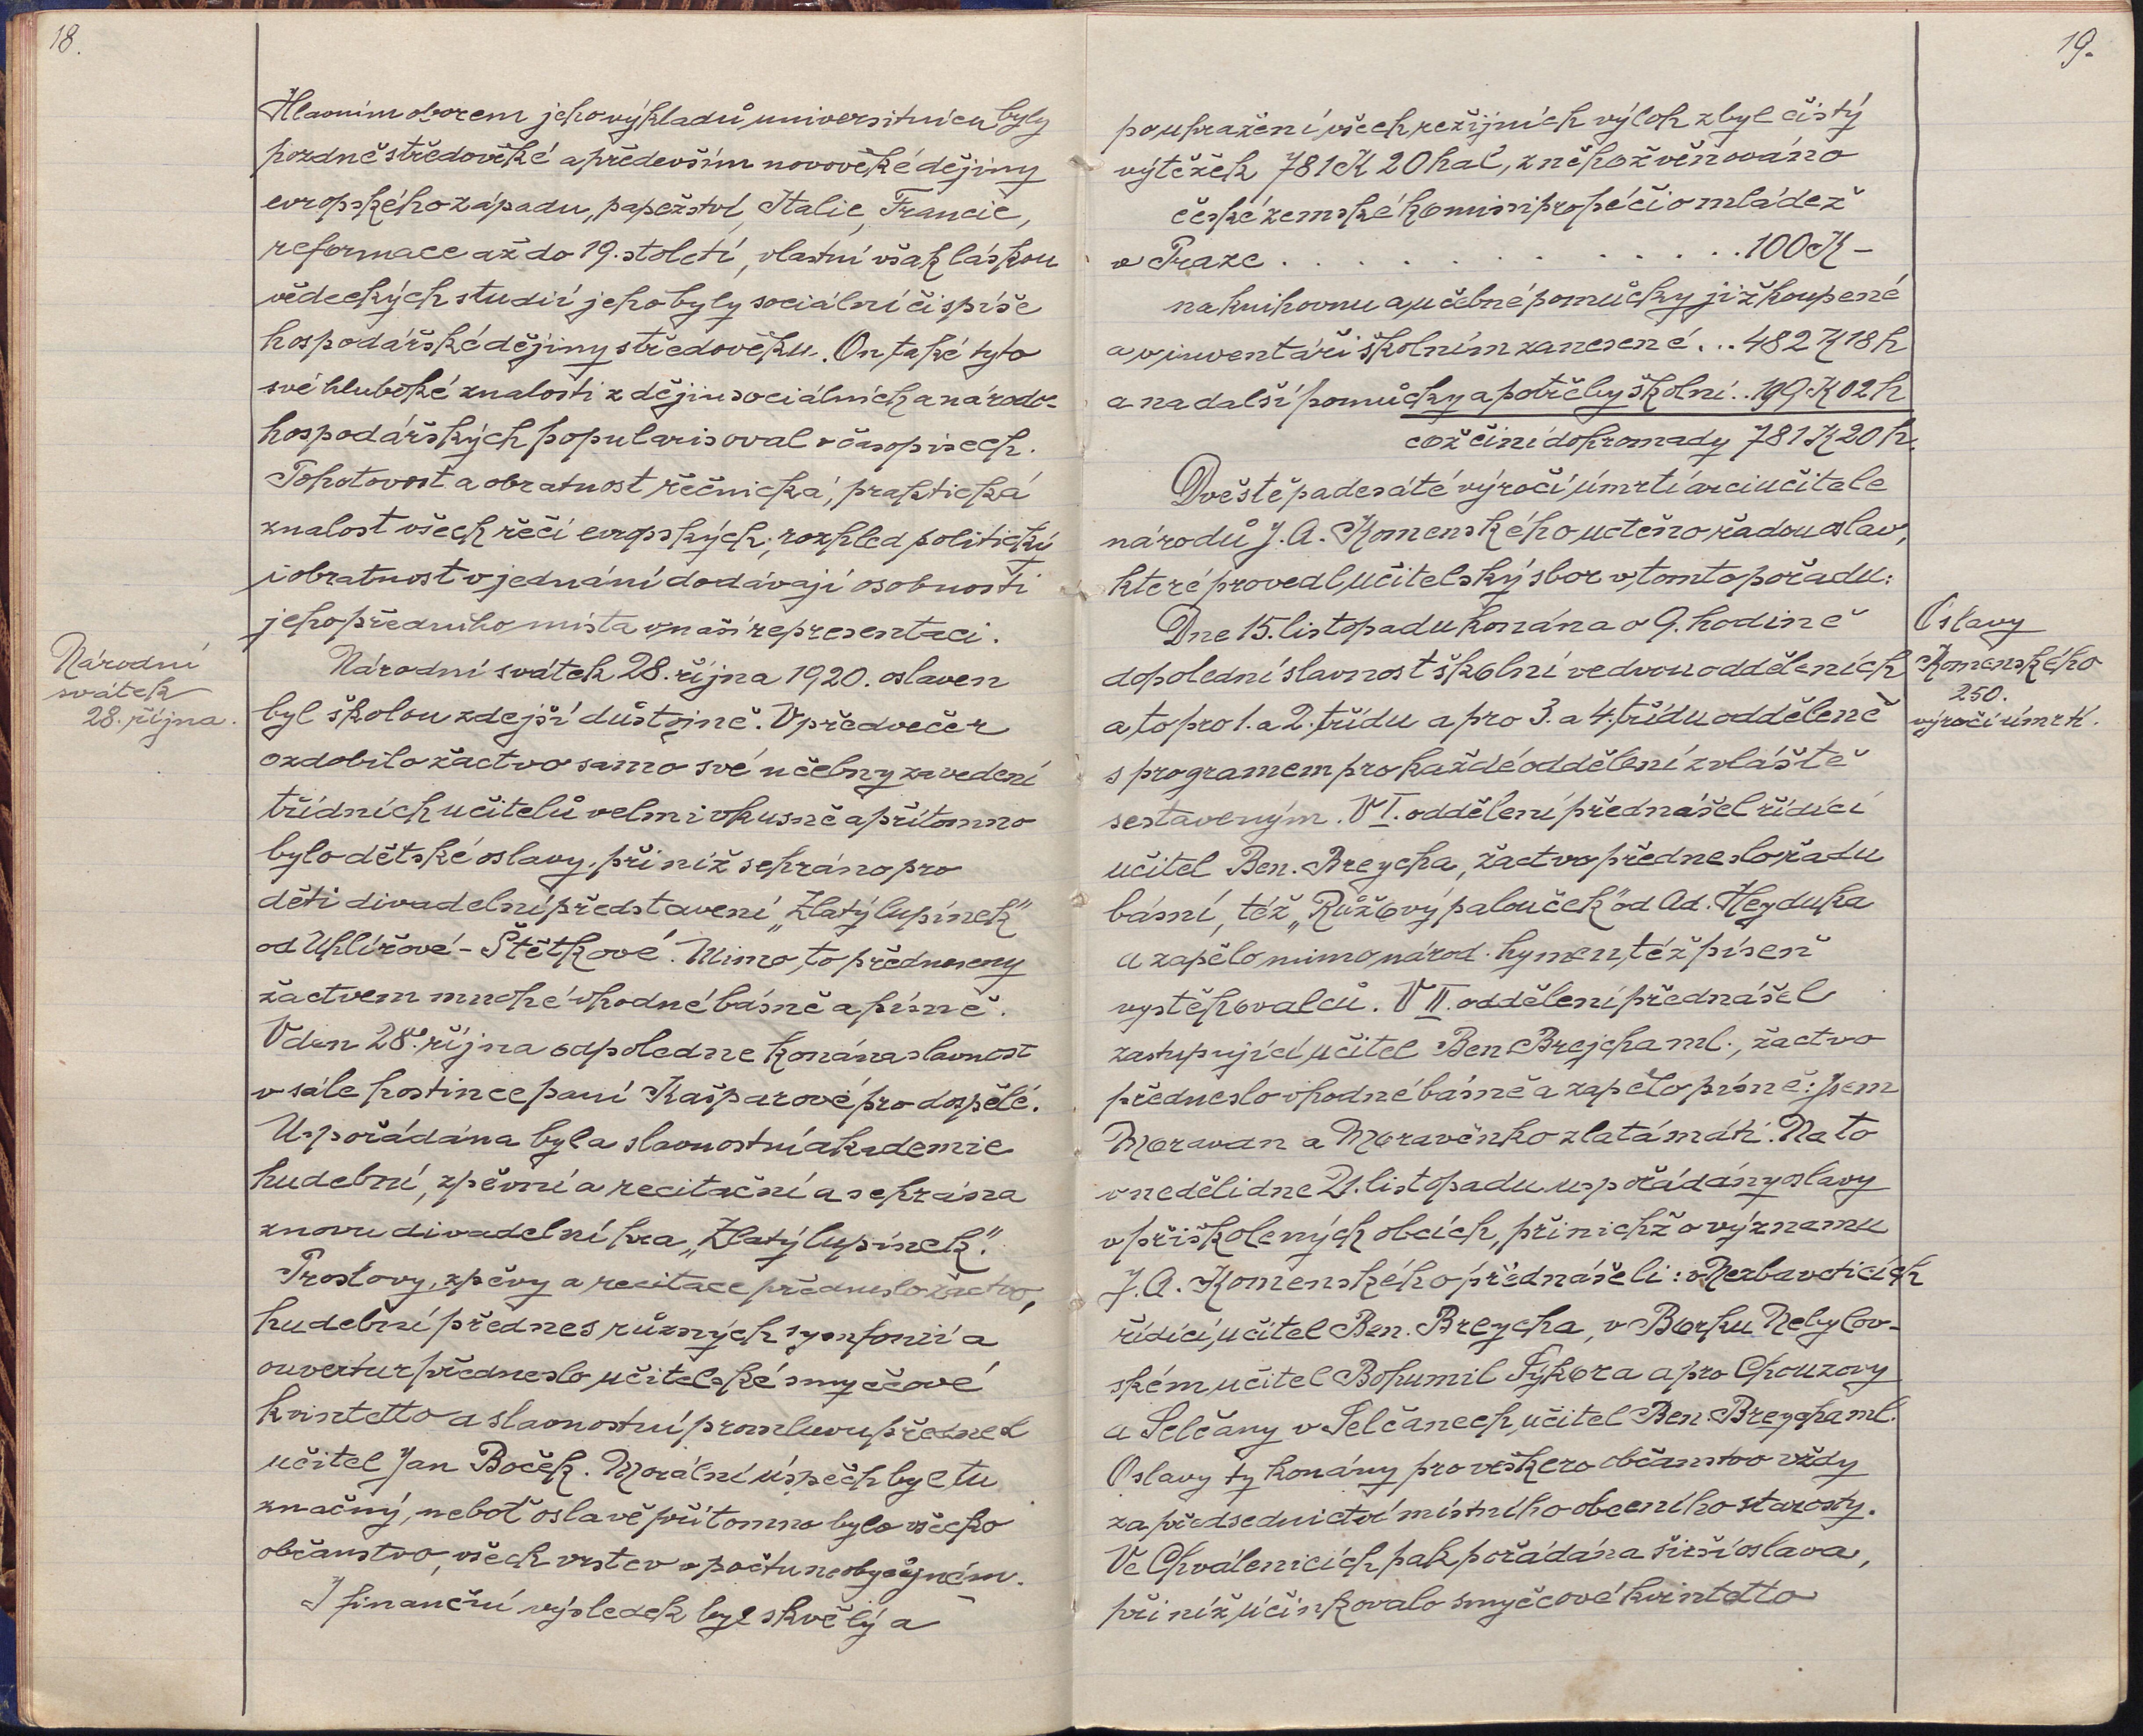 18.
Hlavním oborem jeho výkladů universitních byly
pozdně středověké a především novověké dějiny
evropského západu, papežství, Italie, Francie,
reformace až do 19. století, vlastní však láskou
vědeckých studií jeho byly sociální či spíše
hospodářské dějiny středověku. On také tyto
své hluboké znalosti z dějin sociálních a národo-
hospodářských popularisoval v časopisech.
Pohotovost a obratnost řečnická, praktická
znalost všech řečí evropských, rozhled politický
i obratnost v jednání dodávají osobnosti
jeho předního místa v naší representaci.
Národní
svátek
28. října.
Národní svátek 28. října 1920. oslaven
byl školou zdejší důstojně. V předvečer
ozdobilo žactvo samo své učebny za vedení
třídních učitelů velmi vkusně a přítomno
bylo dětské oslavy, při níž sehráno pro
děti divadelní představení „Zlatý lupínek"
od Uhlířové-Štětkové. Mimo to předneseny
žactvem mnohé vhodné básně a písně.
V den 28. října odpoledne konána slavnost
v sále hostince paní Kašparové pro dospělé.
Uspořádána byla slavnostní akademie
hudební, zpěvní a recitační a sehrána
znovu divadelní hra „Zlatý lupínek".
Proslovy, zpěvy a recitace předneslo žactvo,
hudební přednes různých symfonií a
ouvertur předneslo učitelské smyčcové
kvintetto a slavnostní promluvu přednesl
učitel Jan Boček. Morální úspěch byl tu
značný, neboť oslavě přítomno bylo všecko
občanstvo všech vrstev v počtu neobyčejném.
I finanční výsledek byl skvělý a
19.
po upražení všech režijních výloh zbyl čistý
výtěžek 781 K 20 hal, z něhož věnováno
české zemské komissi pro péči o mládež
v Praze . . . . . . . . . . . . . . 100 K –
na knihovnu a učebné pomůcky již koupené
a v inventáři školním zanesené . . . 482 K 18 h
a na další pomůcky a potřeby školní . . 199 K 02 h
což činí dohromady 781 K 20 h.
Dvěstěpadesáté výročí úmrtí arciučitele
národů J. A. Komenského uctěno řadou oslav,
které provedl učitelský sbor v tomto pořadu:
Oslavy
Komenského
250.
výročí úmrtí.
Dne 15. listopadu konána o 9. hodině
dopolední slavnost školní ve dvou odděleních
a to pro 1. a 2. třídu a pro 3. a 4. třídu odděleně
s programem pro každé oddělení zvláště
sestaveným. V I. oddělení přednášel řídící
učitel Ben. Breycha, žactvo předneslo řadu
básní, též „Růžový palouček" od Ad. Heyduka
a zapělo mimo národ. hymen, též píseň
vystěhovalců. V II. oddělení přednášel
zastupující učitel Ben. Brejcha ml., žactvo
předneslo vhodné básně a zapělo písně: Jsem
Moravan a Moravěnko zlatá máti. Na to
v neděli dne 21. listopadu uspořádány oslavy
v přiškolených obcích, při nichž o významu
J. A. Komenského přednášeli: v Nezbavěticích
řídící učitel Ben. Breycha, v Borku Nebylov-
ském učitel Bohumil Sýkora a pro Chouzovy
a Selčany v Selčanech učitel Ben. Breycha ml.
Oslavy ty konány pro veškero občanstvo vždy
za předsednictví místního obecního starosty.
Ve Chválenicích pak pořádána širší oslava,
při níž účinkovalo smyčcové kvintetto